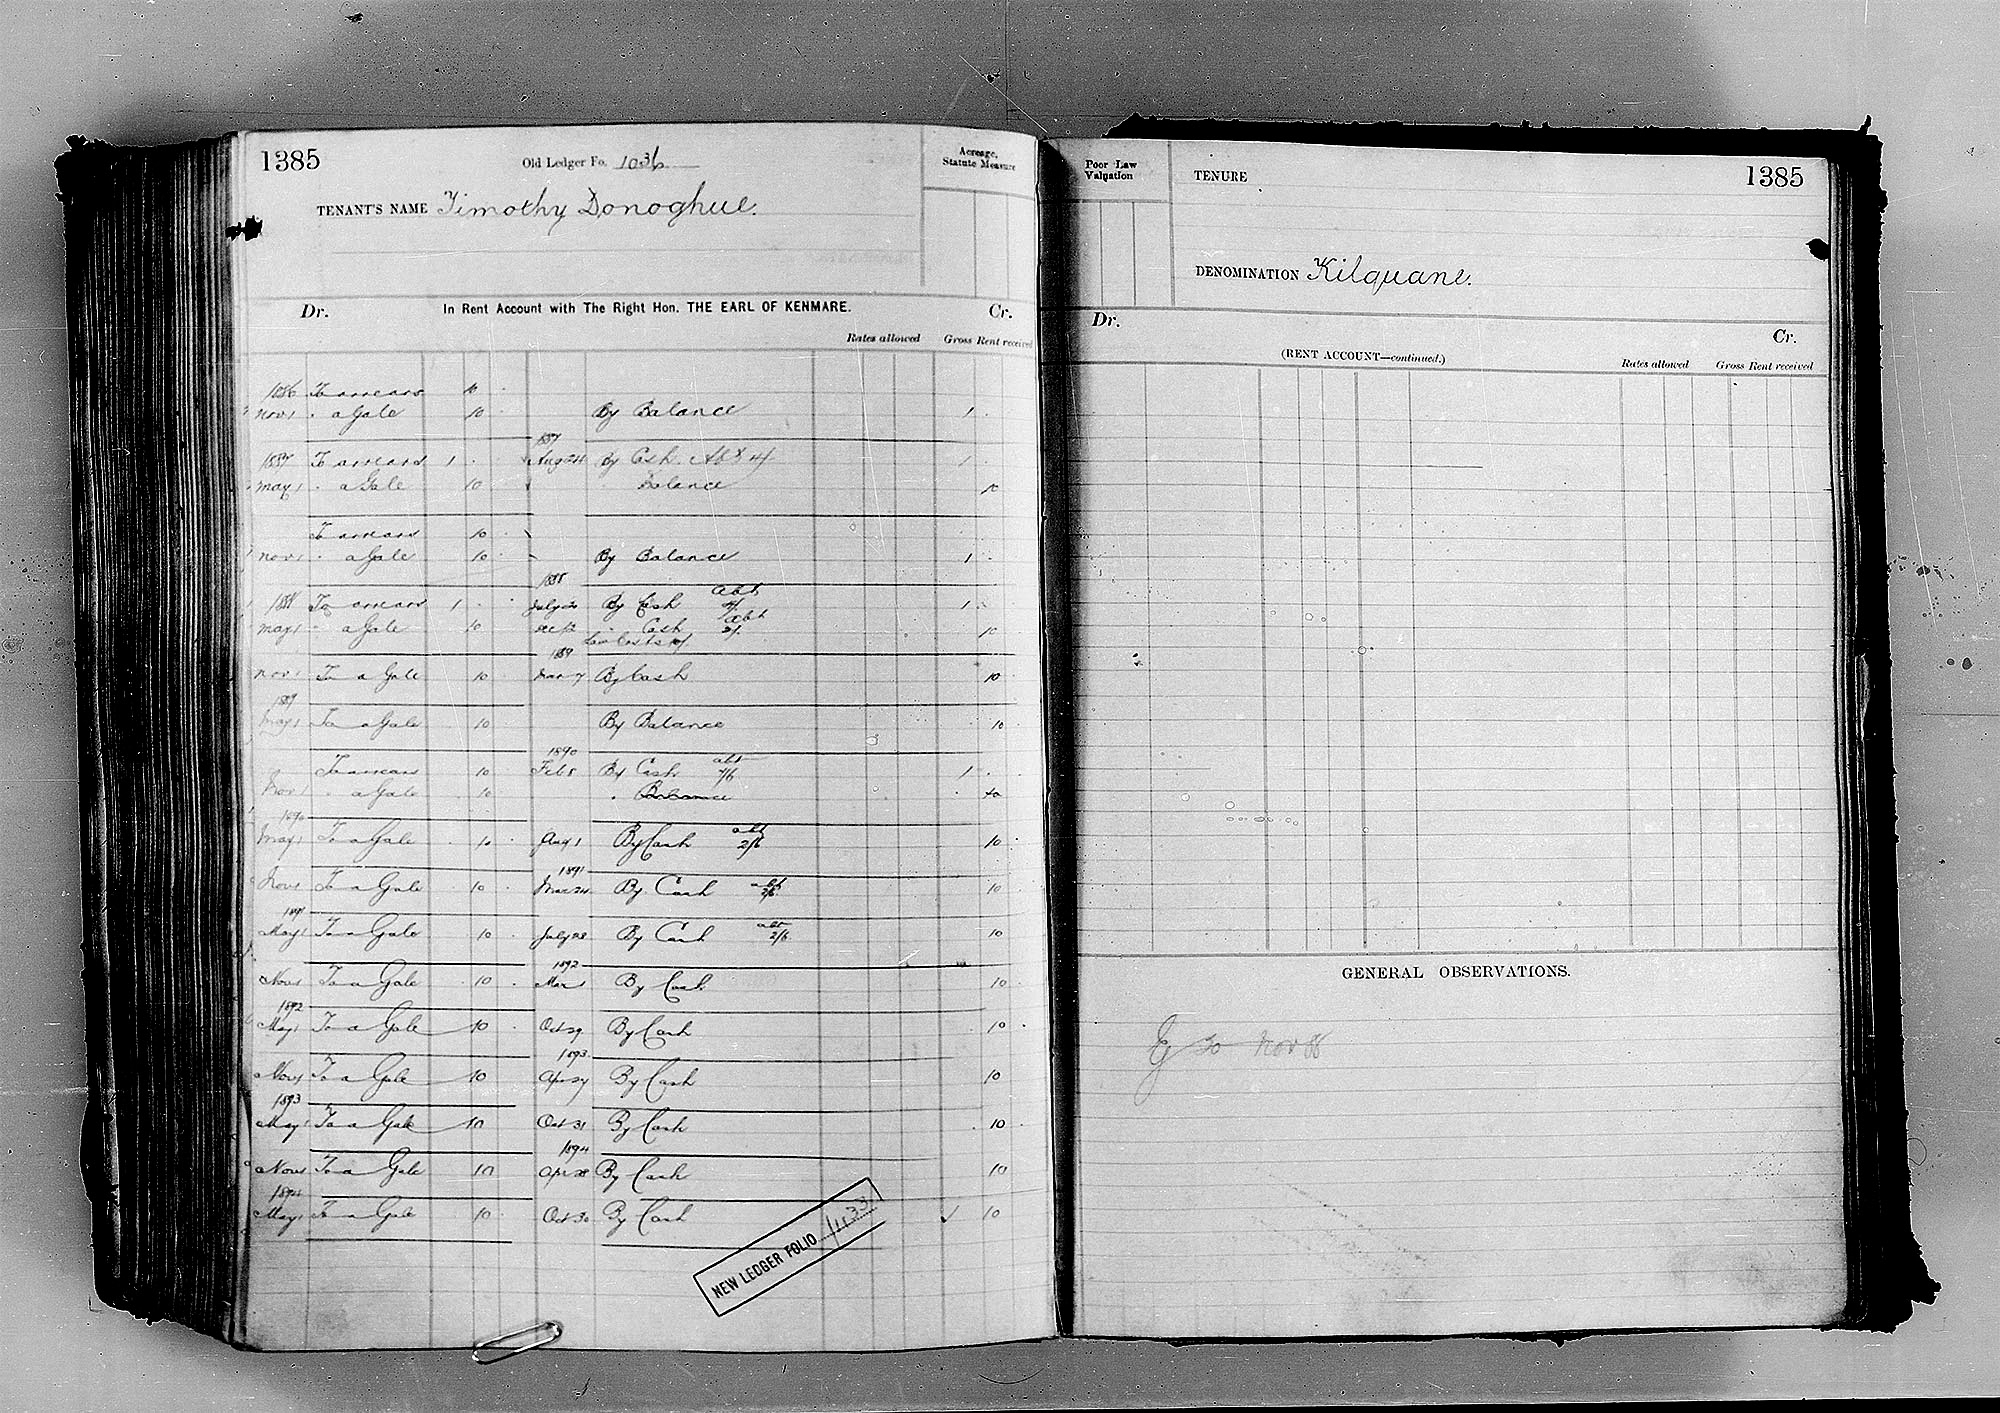 1385
Old Ledger Fo. 1036
Acreage,
Statute Measure
TENANT'S NAME Timothy Donoghue.
In Rent Account with The Right Hon. THE EARL OF KENMARE.
Dr. Cr.
Rates allowed Gross Rent received
1886 To arrears 10
Nov 1 " a Gale 10 By Balance 1
1887
1887 To arrears 1 Aug 24 By Cash. Abt 4/ 1
May 1 " a Gale 10 Balance 10
To arrears 10
Nov 1 " a Gale 10 By Balance 1
1888 abt
1888 To arrears 1 July 20 By Cash 4/ 1
May 1 " a Gale 10 Dec 12 " Cash abt 2/. 10
Law Costs
1889
Nov 1 To a Gale 10 Mar 7 By Cash 10
1889
May 1 To a Gale 10 By Balance 10
1890
To arrears 10 Feb 8 By Cash abt 7/6 1
Nov 1 " a Gale 10 " Balance 10
1890
May 1 To a Gale 10 Aug 1 By Cash abt 2/6 10
1891
Nov 1 To a Gale 10 Mar 24 By Cash abt 2/6 10
1891
May 1 To a Gale 10 July 28 By Cash abt 2/6 10
1892
Nov 1 To a Gale 10 Mar 1 By Cash 10
1892
May 1 To a Gale 10 Oct 29 By Cash 10
1893
Nov 1 To a Gale 10 Apr 27 By Cash 10
1893
May 1 To a Gale 10 Oct 31 By Cash 10
1894
Nov 1 To a Gale 10 Apr 28 By Cash 10
1894
May 1 To a Gale 10 Oct 30 By Cash 10
NEW LEDGER FOLIO 1133
Poor Law
Valuation
TENURE
1385
DENOMINATION Kilquane.
Dr. Cr.
(RENT ACCOUNT—continued.)
Rates allowed Gross Rent received
GENERAL OBSERVATIONS.
Nov 88